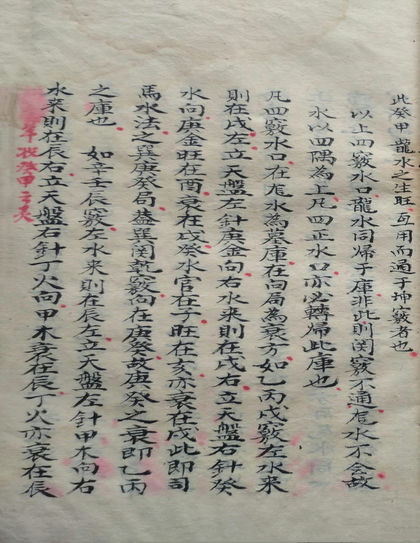 此癸甲龍水之生旺互用而通于坤竅者也
以上四竅水口龍水同帰于庫非此則関竅不通尨水不会故
水以四隅為上凡四正水口亦必轉帰此庫也
凡四竅水口在尨水為墓庫在向局為衰方如乙丙戌竅左水来
則在戌左立天盤左針庚金向右水来則在戌右立天盤右針癸
水向庚金旺在酉衰在戌癸水官在子旺在亥亦衰在戌此即司
馬水法之巽庚癸局葢巽関竅向在庚癸故庚癸之衰即乙丙
之庫也 如辛壬辰竅左水来則在辰左立天盤左針甲木向右
水来則在辰右立天盤右針丁火向甲木衰在辰丁火亦衰在辰
收癸甲之灵